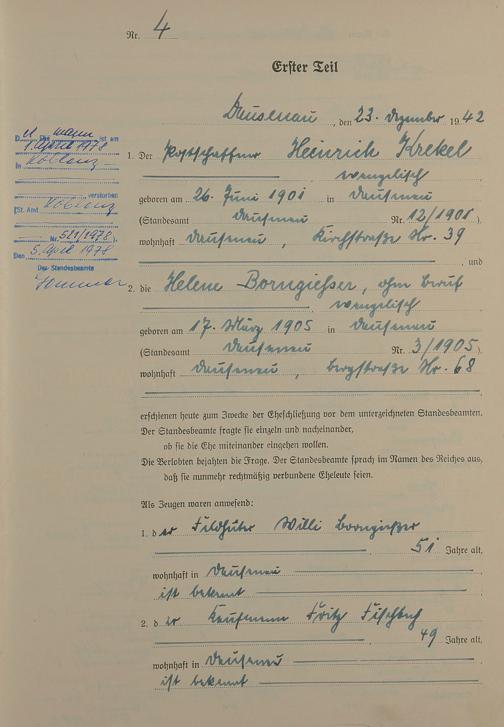 Nr. 4
Erster Teil
Dausenau, den 23. Dezember 1942
1. Der Postschaffner Heinrich Krekel
evangelisch
geboren am 26. Juni 1901 in Dausenau
(Standesamt Dausenau Nr. 12/1901)
wohnhaft Dausenau, Kirchstraße Nr. 39
, und
2. die Helene Borngießer, ohne Beruf
evangelisch
geboren am 17. März 1905 in Dausenau
(Standesamt Dausenau Nr. 3/1905)
wohnhaft Dausenau, Bergstraße Nr. 68
erschienen heute zum Zwecke der Eheschließung vor dem unterzeichneten Standesbeamten.
Der Standesbeamte fragte sie einzeln und nacheinander,
ob sie die Ehe miteinander eingehen wollen.
Die Verlobten bejahten die Frage. Der Standesbeamte sprach im Namen des Reiches aus,
daß sie nunmehr rechtmäßig verbundene Eheleute seien.
Als Zeugen waren anwesend:
1. der Feldhüter Willi Borngießer
, 51 Jahre alt,
wohnhaft in Dausenau
ist bekannt
2. der Kaufmann Fritz Fischbach
, 49 Jahre alt,
wohnhaft in Dausenau
ist bekannt
D. Ehemann ist am
1. April 1978
in Koblenz
verstorben
(St. Amt Koblenz
Nr. 581/1978).
Den 5. April 1978
Der Standesbeamte